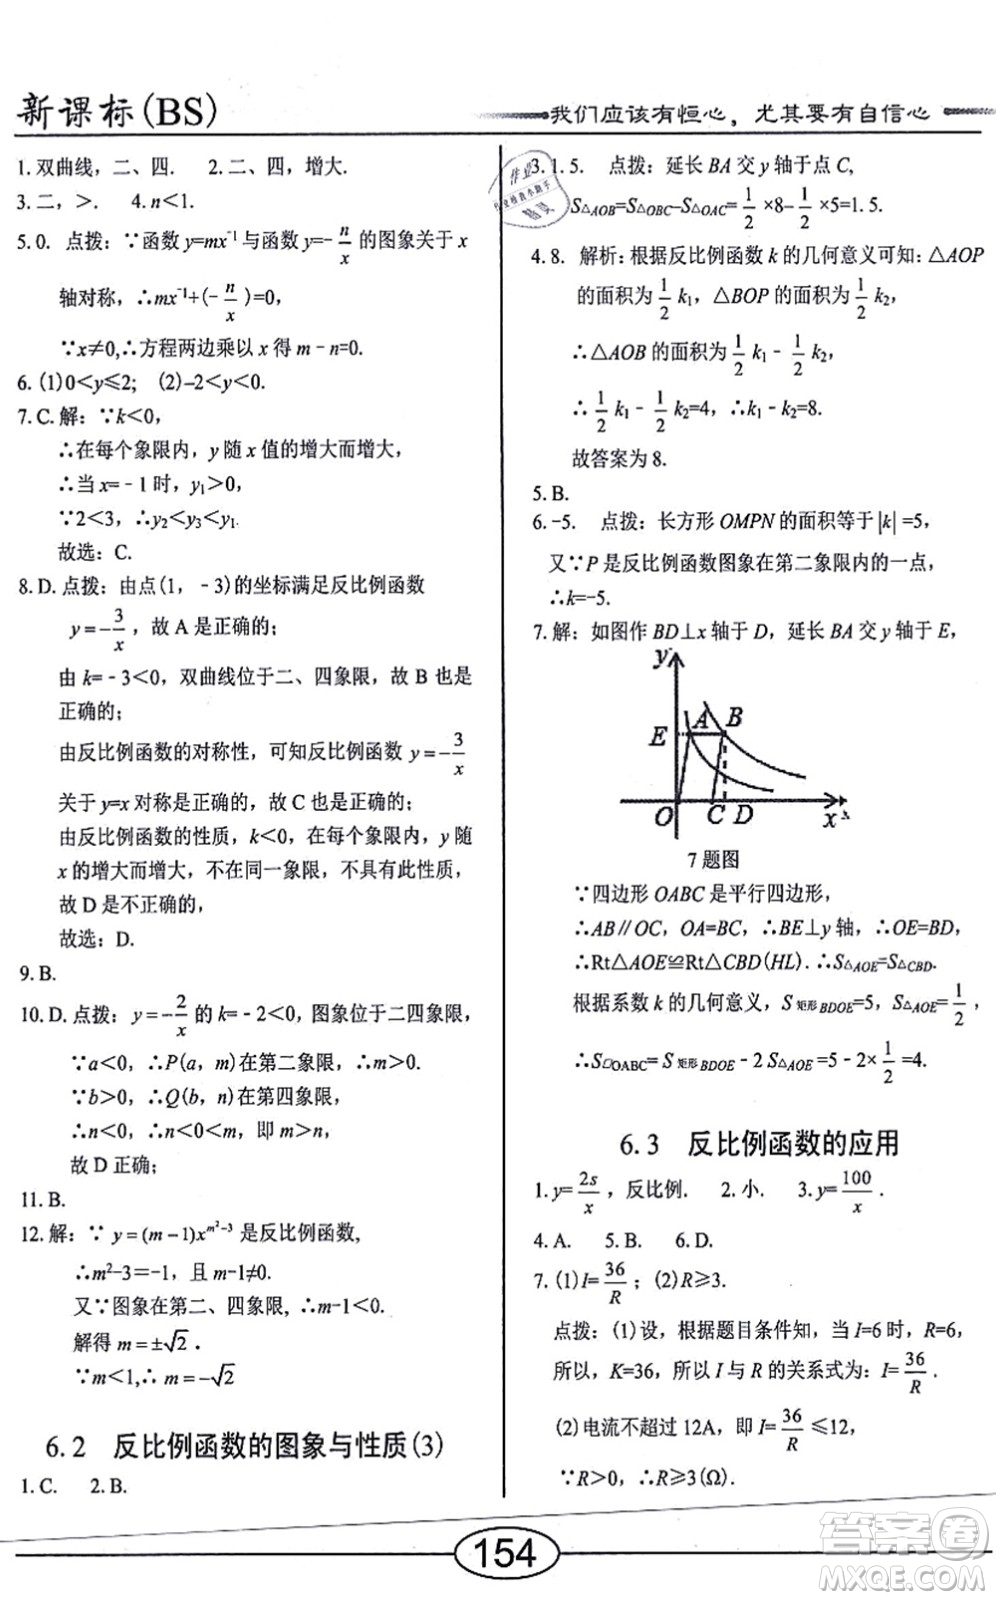 新课标(BS)
我们应该有恒心，尤其要有自信心
1. 双曲线，二、四. 2. 二、四，增大.
3. 二，＞. 4. n＜1.
5. 0. 点拨：∵函数 y=mx⁻¹与函数 y=-n/x 的图象关于 x
轴对称，∴mx⁻¹+(-n/x)=0，
∵x≠0,∴方程两边乘以 x 得 m－n=0.
6. (1)0＜y≤2; (2)-2＜y＜0.
7. C. 解：∵k＜0，
∴在每个象限内，y 随 x 值的增大而增大，
∴当 x=－1 时，y₁＞0，
∵2＜3，∴y₂＜y₃＜y₁.
故选：C.
8. D. 点拨：由点(1，﹣3)的坐标满足反比例函数
y=-3/x，故 A 是正确的；
由 k=﹣3＜0，双曲线位于二、四象限，故 B 也是
正确的；
由反比例函数的对称性，可知反比例函数 y=-3/x
关于 y=x 对称是正确的，故 C 也是正确的；
由反比例函数的性质，k＜0，在每个象限内，y 随
x 的增大而增大，不在同一象限，不具有此性质，
故 D 是不正确的，
故选：D.
9. B.
10. D. 点拨：y=-2/x 的 k=﹣2＜0，图象位于二四象限，
∵a＜0，∴P(a，m)在第二象限，∴m＞0.
∵b＞0，∴Q(b，n)在第四象限，
∴n＜0，∴n＜0＜m，即 m＞n，
故 D 正确；
11. B.
12. 解：∵ y=(m-1)x^(m²-3) 是反比例函数,
∴m²-3=-1，且 m-1≠0.
又∵图象在第二、四象限，∴m-1＜0.
解得 m=±√2.
∵m＜1,∴m=-√2
6.2 反比例函数的图象与性质(3)
1. C. 2. B.
3. 1. 5. 点拨：延长 BA 交 y 轴于点 C，
S△AOB=S△OBC-S△OAC=1/2×8-1/2×5=1. 5.
4. 8. 解析：根据反比例函数 k 的几何意义可知：△AOP
的面积为 1/2 k₁，△BOP 的面积为 1/2 k₂，
∴△AOB 的面积为 1/2 k₁﹣1/2 k₂，
∴ 1/2 k₁﹣1/2 k₂=4，∴k₁﹣k₂=8.
故答案为 8.
5. B.
6. -5. 点拨：长方形 OMPN 的面积等于|k|=5，
又∵P 是反比例函数图象在第二象限内的一点，
∴k=-5.
7. 解：如图作 BD⊥x 轴于 D，延长 BA 交 y 轴于 E，
y
E A B
O C D x
7 题图
∵四边形 OABC 是平行四边形，
∴AB∥OC，OA=BC，∴BE⊥y 轴，∴OE=BD，
∴Rt△AOE≌Rt△CBD(HL). ∴S△AOE=S△CBD.
根据系数 k 的几何意义，S矩形BDOE=5，S△AOE=1/2，
∴S▱OABC=S矩形BDOE-2 S△AOE=5-2×1/2=4.
6.3 反比例函数的应用
1. y=2s/x，反比例. 2. 小. 3. y=100/x.
4. A. 5. B. 6. D.
7. (1)I=36/R；(2)R≥3.
点拨：(1)设，根据题目条件知，当 I=6 时，R=6，
所以，K=36，所以 I 与 R 的关系式为：I=36/R
(2)电流不超过 12A，即 I=36/R≤12，
∵R＞0，∴R≥3(Ω).
154
答案圈
MXQE.COM